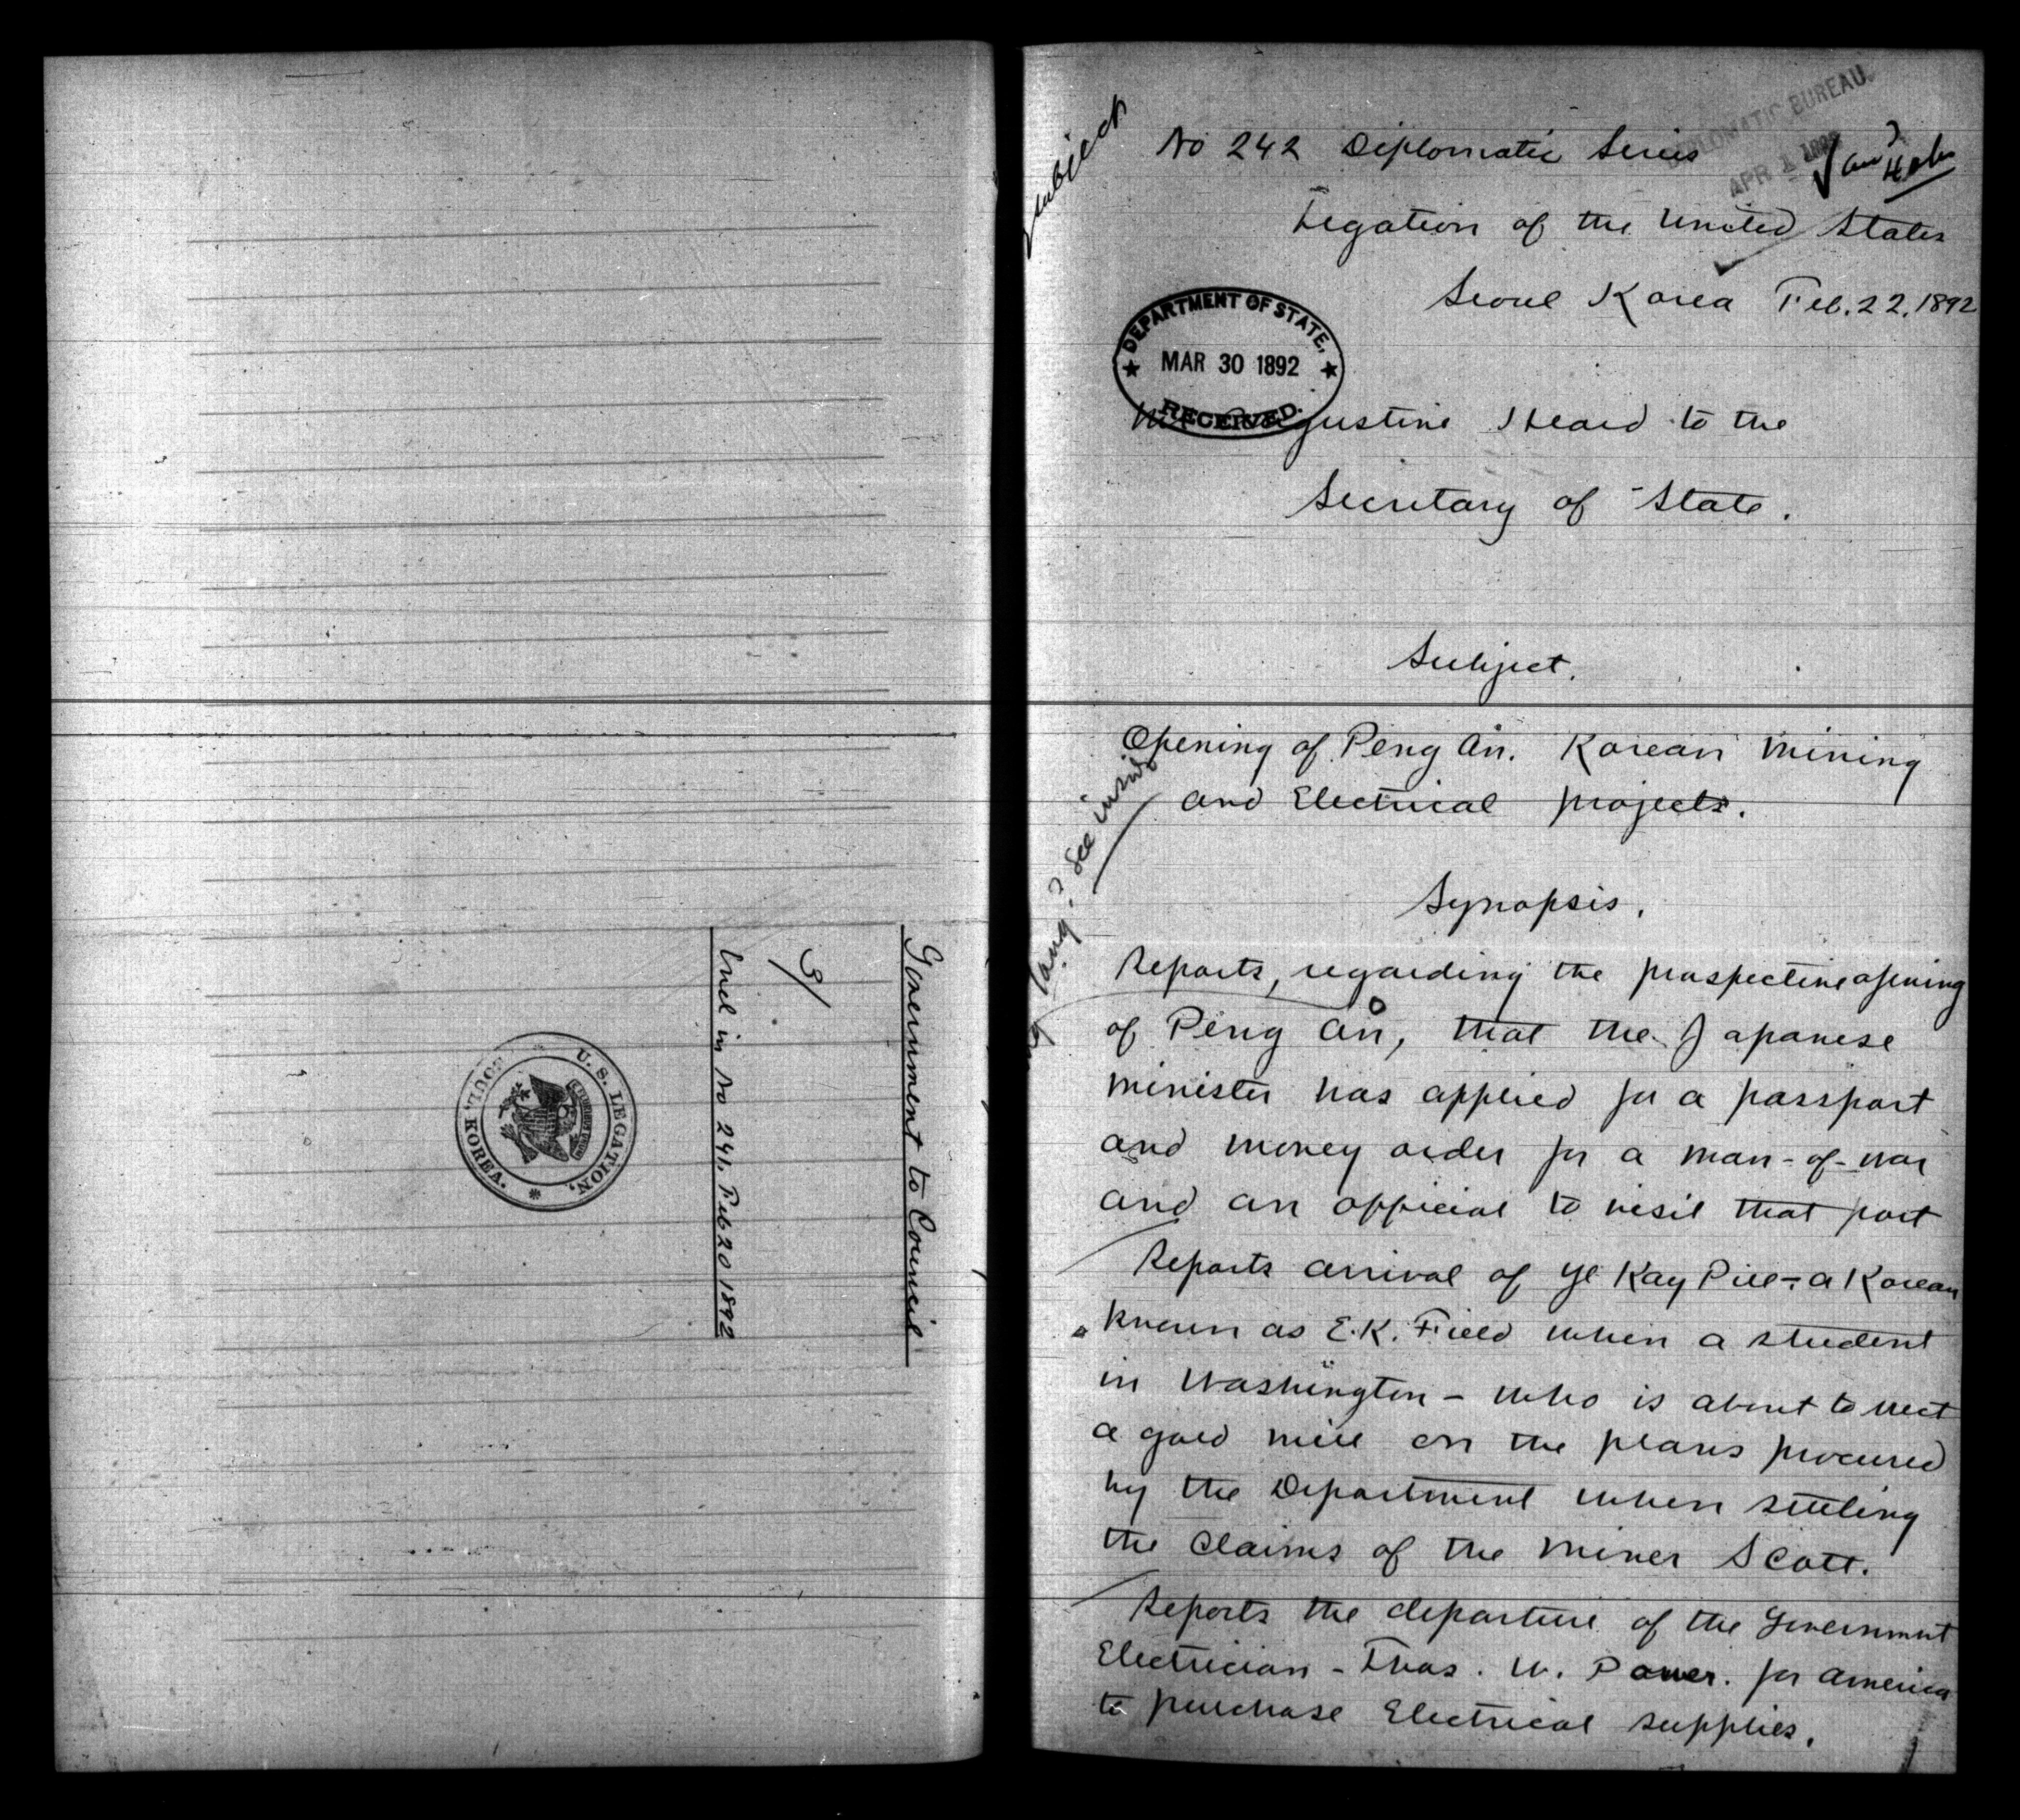 Government to Council
3/
Encl in No 241. Feb 20 1892
U. S. LEGATION,
SOUL KOREA.
DIPLOMATIC BUREAU.
APR 1 1892
No 242 Diplomatic Series
Legation of the United States
Seoul Korea Feb. 22, 1892
DEPARTMENT OF STATE,
MAR 30 1892
RECEIVED.
Mr Augustine Heard to the
Secretary of State.
Subject
Subject.
Opening of Peng An. Korean Mining
and Electrical projects.
See inside
Synopsis.
Reports, regarding the prospective opening
of Peng An, that the Japanese
Minister has applied for a passport
and money order for a man-of-war
and an official to visit that port
Reports arrival of Ye Kay Pill - a Korean
known as E.K. Field when a student
in Washington - who is about to erect
a gold mill on the plans procured
by the Department when settling
the claims of the miner Scott.
Reports the departure of the Government
Electrician - Thos. W. Power. for America
to purchase Electrical supplies.